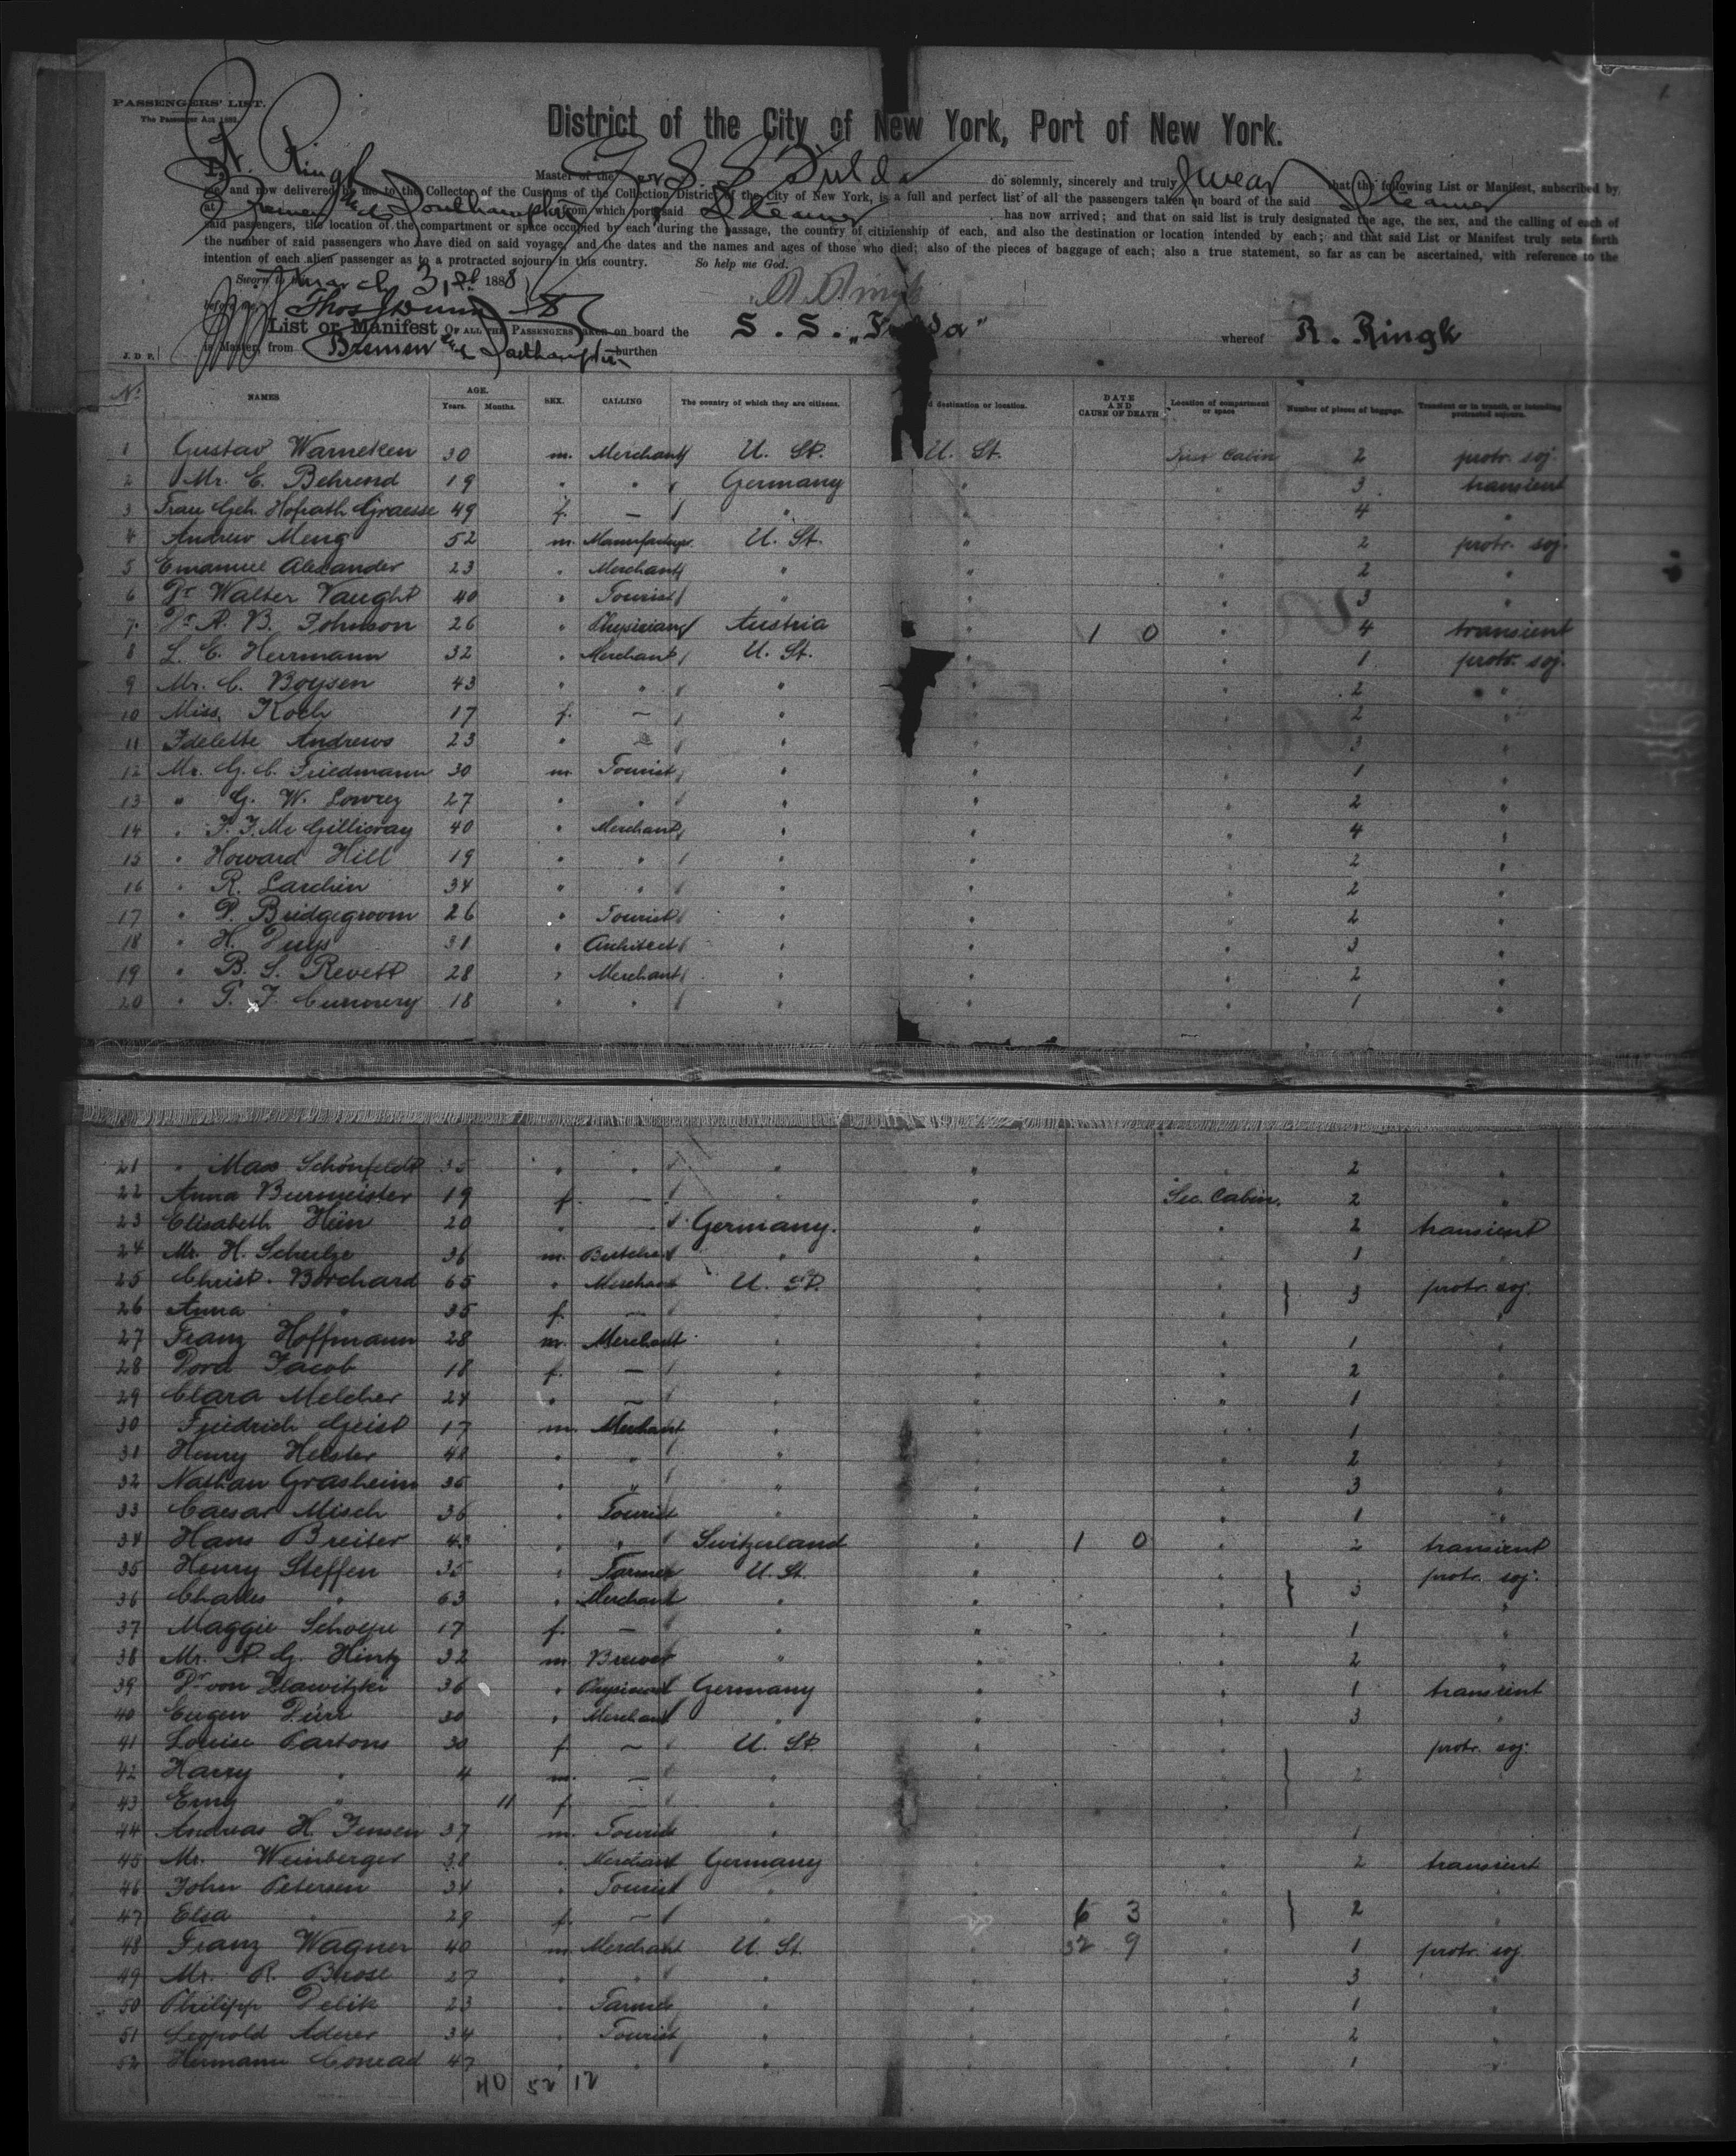 PASSENGERS' LIST.
The Passenger Act 1882.
District of the City of New York, Port of New York.
I, R. Ringk Master of the Ger. S. S. Fulda do solemnly, sincerely and truly swear that the following List or Manifest, subscribed by
me and now delivered by me to the Collector of the Customs of the Collection District of the City of New York, is a full and perfect list of all the passengers taken on board of the said Steamer
at Bremen and Southampton from which port said Steamer has now arrived; and that on said list is truly designated the age, the sex, and the calling of each of
said passengers, the location of the compartment or space occupied by each during the passage, the country of citizenship of each, and also the destination or location intended by each; and that said List or Manifest truly sets forth
the number of said passengers who have died on said voyage, and the dates and the names and ages of those who died; also of the pieces of baggage of each; also a true statement, so far as can be ascertained, with reference to the
intention of each alien passenger as to a protracted sojourn in this country. So help me God.
Sworn to this March 31st 1888
before me Thos Dunn
R Ringk
List or Manifest OF ALL THE PASSENGERS taken on board the S. S. "Fulda" whereof R. Ringk
is Master, from Bremen and Southampton burthen
J. D. P.
No. NAMES AGE. Years. Months. SEX. CALLING The country of which they are citizens. destination or location. DATE AND CAUSE OF DEATH Location of compartment or space Number of pieces of baggage. Transient or in transit, or intending protracted sojourn.
1 Gustav Warneken 30 m. Merchant U. St. U. St. First Cabin 2 protr. soj.
2 Mr. E. Behrend 19 " " Germany " " 3 transient
3 Frau Geh. Hofrath Graesse 49 f. — " " " 4 "
4 Andrew Meng 52 m. Manufacturer U. St. " " 2 protr. soj.
5 Emanuel Alexander 23 " Merchant " " " 2 "
6 Dr Walter Vaught 40 " Tourist " " " 3 "
7 Dr R. B. Johnson 26 " Physician Austria " 1 0 " 4 transient
8 L. C. Herrmann 32 " Merchant U. St. " " 1 protr. soj.
9 Mr. C. Boysen 43 " " " " " 2 "
10 Miss. Koch 17 f. — " " " 2 "
11 Idelette Andrews 23 " — " " " 3 "
12 Mr. G. C. Friedmann 30 m. Tourist " " " 1 "
13 " G. W. Lowrey 27 " " " " " 2 "
14 " F. F. Mc Gillivray 40 " Merchant " " " 4 "
15 " Howard Hill 19 " " " " " 2 "
16 " R. Larchin 34 " " " " " 2 "
17 " P. Bridgegroom 26 " Tourist " " " 2 "
18 " H. Duys 31 " Architect " " " 3 "
19 " B. S. Revett 28 " Merchant " " " 2 "
20 " P. F. 18 " " " " " 1 "
21 " Max Schönfeldt 35 " " " " " 2 "
22 Anna Burmeister 19 f. — " " Sec. Cabin. 2 "
23 Elisabeth Hein 20 " — Germany. " " 2 transient
24 Mr. H. Schulze 36 m. Butcher " " " 1 "
25 Christ. Borchard 65 " Merchant U. St. " " } 3 protr. soj.
26 Anna " 35 f. — " " " "
27 Franz Hoffmann 28 m. Merchant " " " 1 "
28 Dora Jacob 18 f. — " " " 2 "
29 Clara Melcher 24 " — " " " 1 "
30 Friedrich Geist 17 m. Merchant " " " 1 "
31 Henry Helster 48 " " " " " 2 "
32 Nathan Grasheim 35 " " " " " 3 "
33 Caesar Misch 36 " Tourist " " " 1 "
34 Hans Breiter 43 " " Switzerland " 1 0 " 2 transient
35 Henry Steffen 35 " Farmer U. St. " " } 3 protr. soj.
36 Charles " 63 " Merchant " " " "
37 Maggie 17 f. — " " " 1 "
38 Mr. P. G. Hintz 32 m. Brewer " " " 2 "
39 Dr von Zlawitzki 36 " Physician Germany " " 1 transient
40 Eugen Dürr 30 " Merchant " " " 3 "
41 Louise Parsons 30 f. — U. St. " " } 2 protr. soj.
42 Harry " 4 m. — " " " "
43 Emy " 11 f. — " " "
44 Andreas H. Jensen 37 m. Tourist " " " 1 "
45 Mr. Weinberger 38 " Merchant Germany " " 2 transient
46 John Petersen 34 " Tourist " " " } 2 "
47 Elsa " 29 f. — " 6 3 " "
48 Franz Wagner 40 m. Merchant U. St. " 32 9 " 1 protr. soj.
49 Mr. R. Brose 27 " " " " " 3 "
50 Philipp Delik 23 " Farmer " " " 1 "
51 Leopold Aderer 34 " Tourist " " " 2 "
52 Hermann Conrad 47 " " " " " 1 "
40 52 12